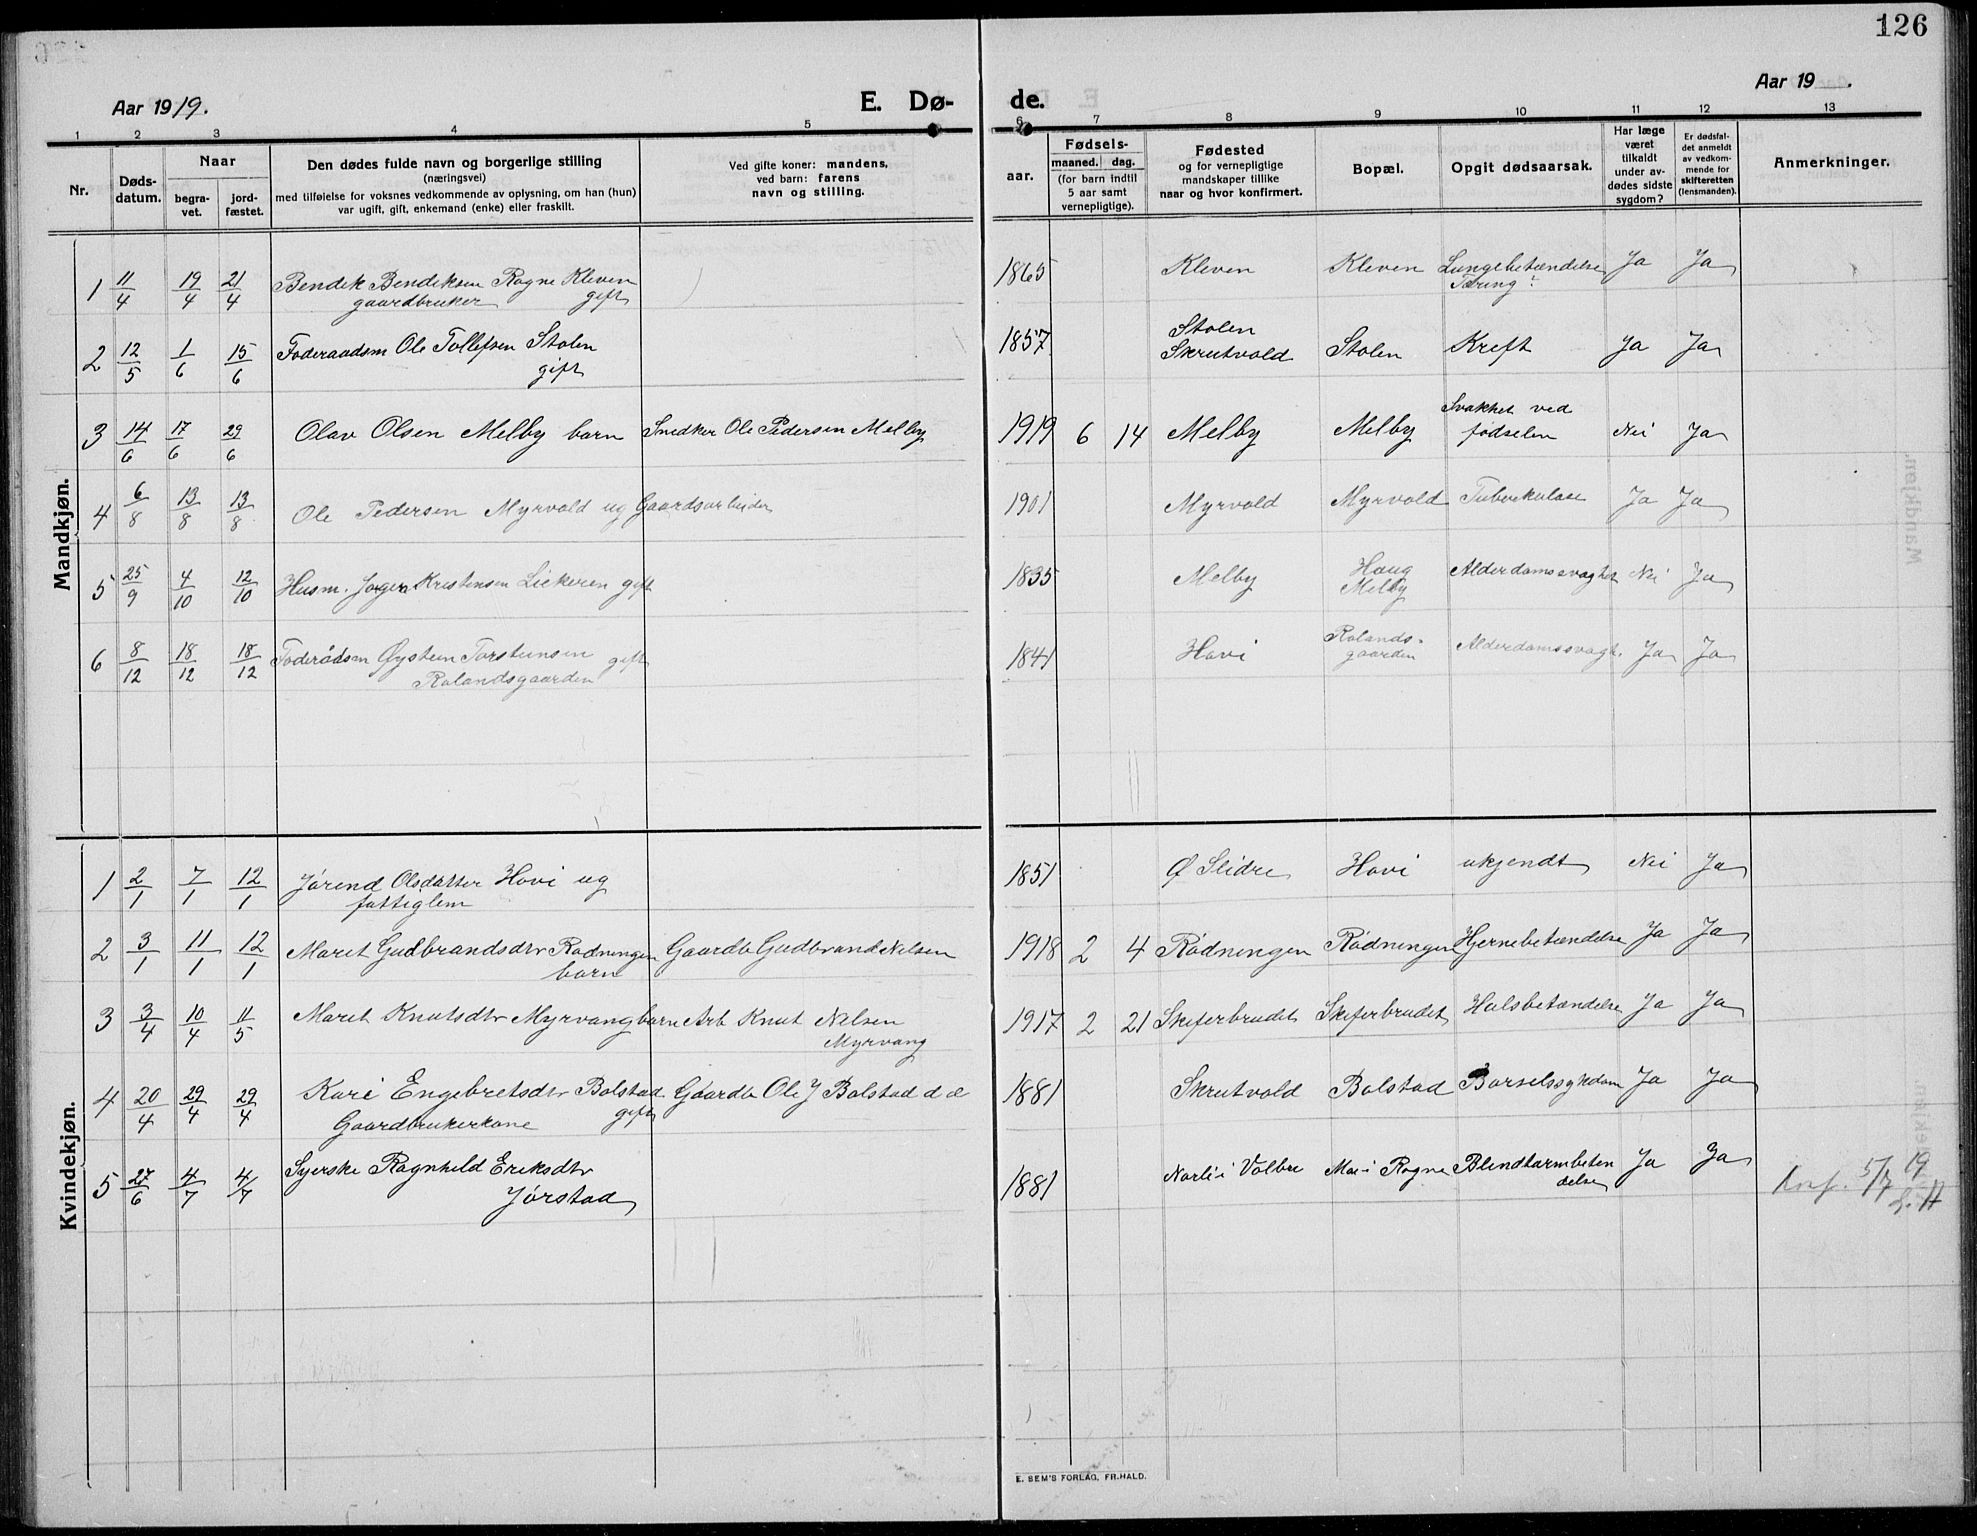 126
Aar 1919.
E. Dø-
de.
Aar 19 .
1 2 3 4 5 6 7 8 9 10 11 12 13
Nr.
Døds-
datum.
Naar
begra-
vet.
jord-
fæstet.
Den dødes fulde navn og borgerlige stilling
(næringsvei)
med tilføielse for voksnes vedkommende av oplysning, om han (hun)
var ugift, gift, enkemand (enke) eller fraskilt.
Ved gifte koner: mandens,
ved barn: farens
navn og stilling.
aar.
Fødsels-
maaned. dag.
(for barn indtil
5 aar samt
vernepligtige).
Fødested
og for vernepligtige
mandskaper tillike
naar og hvor konfirmert.
Bopæl.
Opgit dødsaarsak.
Har læge
været
tilkaldt
under av-
dødes sidste
sygdom?
Er dødsfal-
det anmeldt
av vedkom-
mende for
skifteretten
(lensmanden).
Anmerkninger.
Mandkjøn.
1 11/4 19/4 21/4 Bendik Bendiksen Rogne Kleven 1865 Kleven Kleven Lungebetændelse Ja Ja
gaardbruker gift Tæring?
2 12/5 1/6 15/6 Foderaadsm Ole Tollefsen Stolen 1857 Stolen
gift Skrutvold Stolen Kreft Ja Ja
3 14/6 17/6 29/6 Olav Olsen Melby barn Snedker Ole Pedersen Melby 1919 6 14 Melby Melby Svakhet ved
fødselen Nei Ja
4 6/8 13/8 13/8 Ole Pedersen Myrvold ug Gaardsarbeider 1901 Myrvold Myrvold Tuberkulose Ja Ja
5 25/9 4/10 12/10 Husm. Kristensen Liekeren gift 1835 Melby Haug
Melby Alderdomssvaghet Nei Ja
6 8/12 18/12 18/12 Foderådsm Øystein Torsteinsen gift 1841 Hovi Rolands-
Rolandsgaarden gaarden Alderdomssvagh. Ja Ja
Kvindekjøn.
1 2/1 7/1 12/1 Jørend Olsdatter Hovi ug 1851 Ø Slidre Hovi ukjendt Nei Ja
fattiglem
2 3/1 11/1 12/1 Marit Gudbrandsdtr Rødningen Gaardb Gudbrand Nilsen 1918 2 4 Rødningen Rødningen Hjernebetændelse Ja Ja
barn
3 3/4 10/4 11/5 Marit Knutsdtr Myrvang barn Arb Knut Nilsen 1917 2 21 Skiferbrudet Skiferbrudet Halsbetændelse Ja Ja
Myrvang
4 20/4 29/4 29/4 Kari Engebretsdtr Bolstad Gaardb Ole J Bolstad d æ 1881 Skrutvold Bolstad Barselssygdom Ja Ja
Gaardbrukerkone gift
5 27/6 4/7 4/7 Syerske Ragnhild Eriksdtr 1881 Norli i Volbu Moe i Rogne Blindtarmbeten
delse Ja Ja 5/7 19
Jørstad
E. SEM'S FORLAG, FR.HALD.